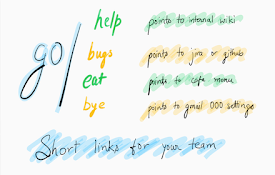 go/
help points to internal wiki
bugs points to jira or github
eat points to cafe menu
bye points to gmail OOO settings
Short links for your team